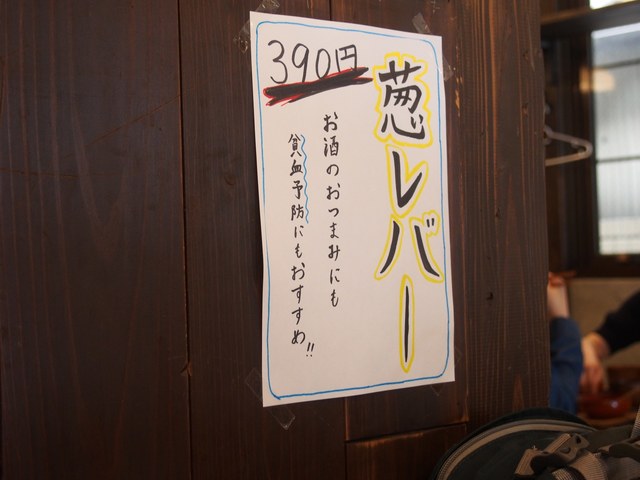 葱レバー
390円
お酒のおつまみにも
貧血予防にもおすすめ!!